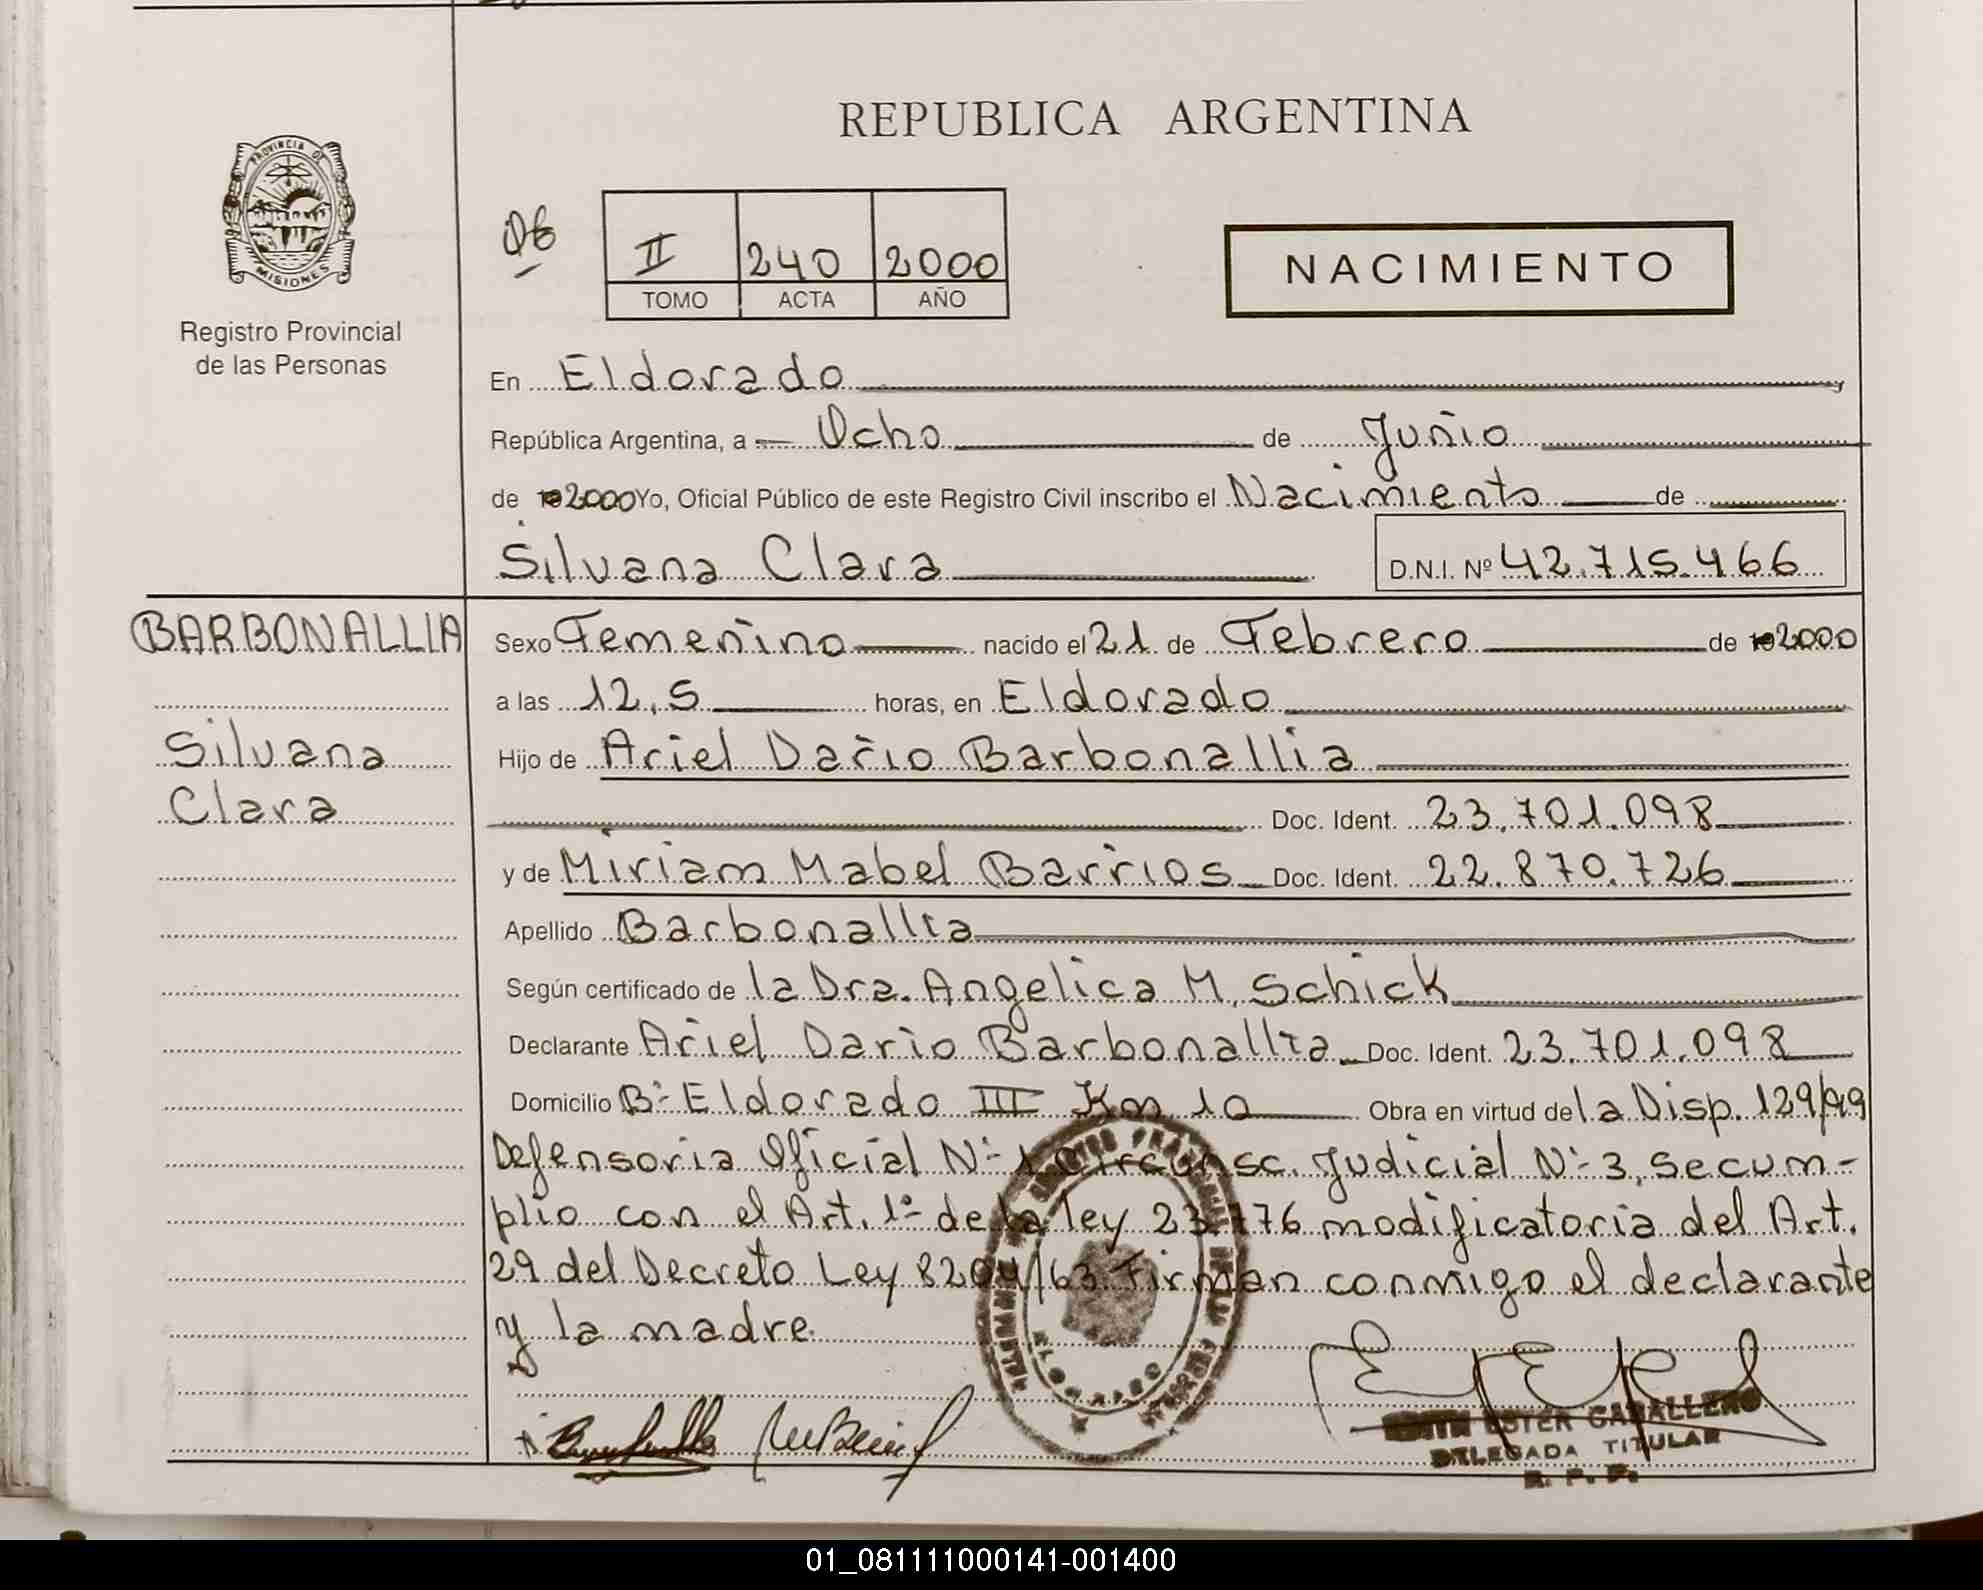 REPUBLICA ARGENTINA
PROVINCIA DE
MISIONES
Registro Provincial
de las Personas
06
II 240 2000
TOMO ACTA AÑO
NACIMIENTO
En Eldorado
República Argentina, a Ocho de Junio
de 2000 Yo, Oficial Público de este Registro Civil inscribo el Nacimiento de
Silvana Clara D.N.I. Nº 42.715.466
BARBONALLIA
Silvana
Clara
Sexo Femenino nacido el 21 de Febrero de 2000
a las 12,5 horas, en Eldorado
Hijo de Ariel Dario Barbonallia
Doc. Ident. 23.701.098
y de Miriam Mabel Barrios Doc. Ident. 22.870.726
Apellido Barbonallia
Según certificado de la Dra. Angelica M. Schick
Declarante Ariel Dario Barbonallia Doc. Ident. 23.701.098
Domicilio Bº Eldorado III Km 10 Obra en virtud de la Disp. 129/99
Defensoria Oficial Nº 1 Circunsc. Judicial Nº 3, se cum-
plio con el Art. 1º de la ley 23.776 modificatoria del Art.
29 del Decreto Ley 8204/63 Firman conmigo el declarante
y la madre.
ESTER CABALLERO
DELEGADA TITULAR
R. P. P.
01_081111000141-001400